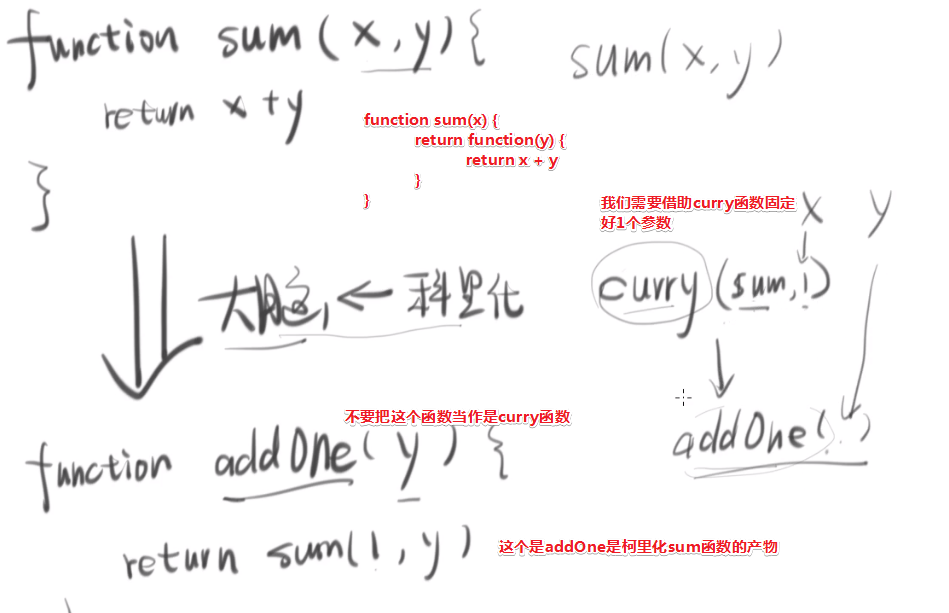 function sum(x,y){
sum(x,y)
return x+y
}
function sum(x) {
return function(y) {
return x + y
}
}
我们需要借助curry函数固定
好1个参数
x y
curry(sum,1)
大脑 ← 科里化
不要把这个函数当作是curry函数
function addOne(y){
addOne( )
return sum(1,y)
这个是addOne是柯里化sum函数的产物